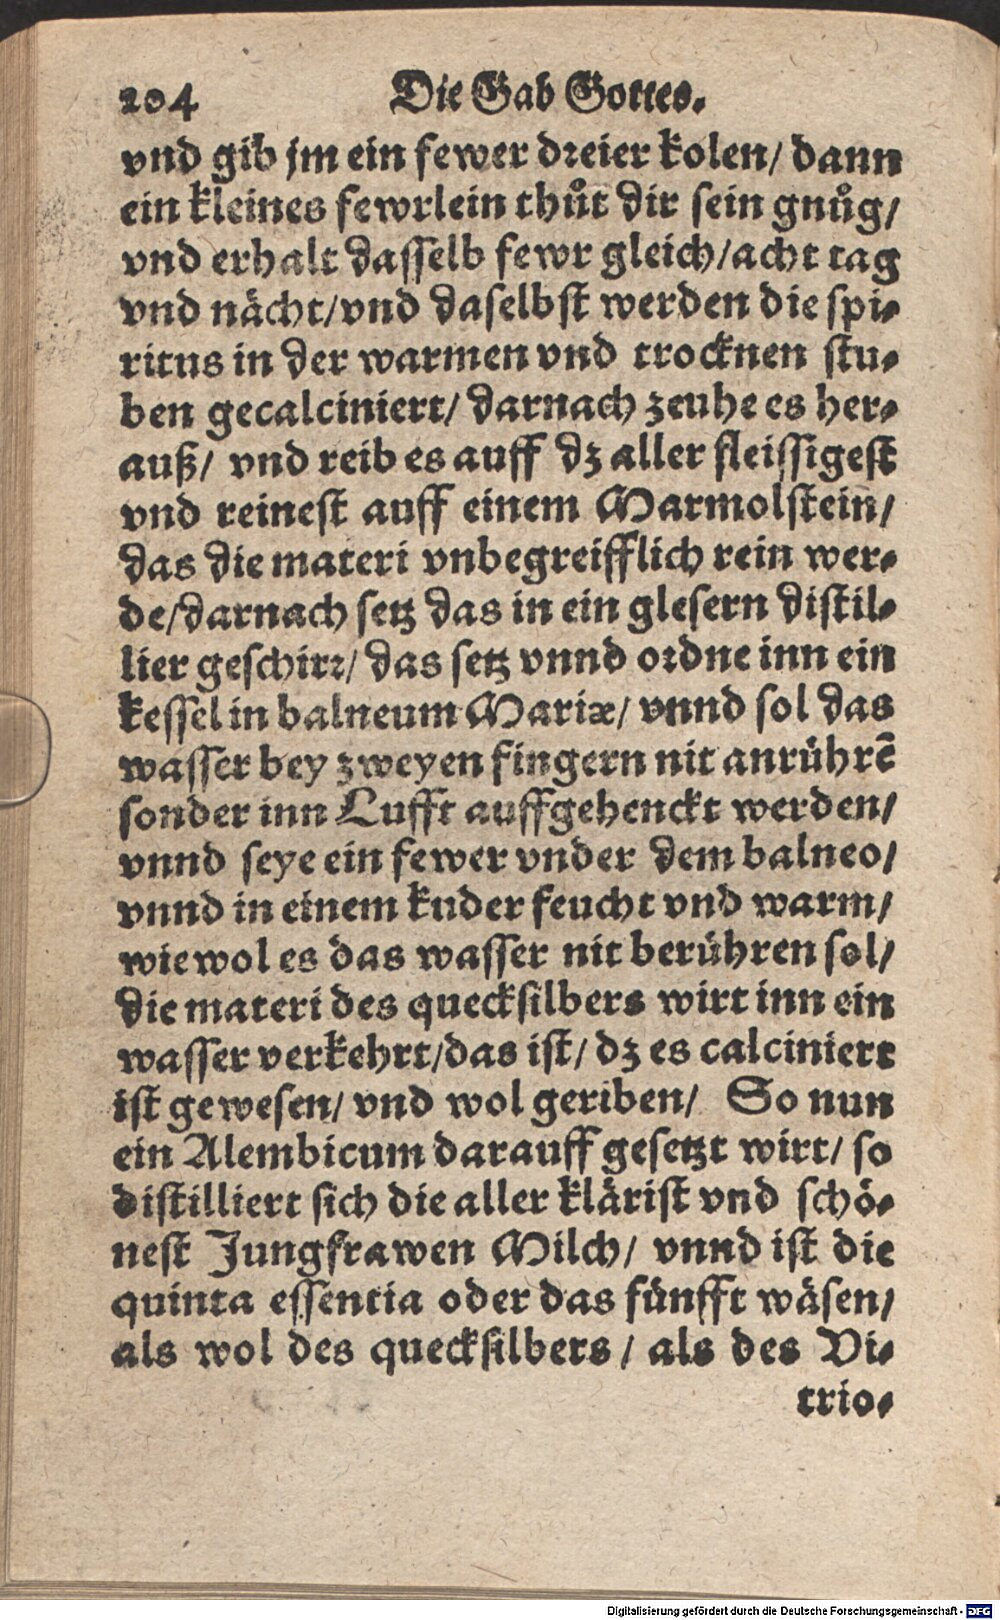 204 Die Gab Gottes.
vnd gib jm ein fewer dreier kolen/ dann
ein kleines fewrlein thůt dir sein gnůg/
vnd erhalt dasselb fewr gleich/acht tag
vnd nächt/vnd daselbst werden die spi-
ritus in der warmen vnd trocknen stu-
ben gecalciniert/ darnach zeuhe es her-
auß/ vnd reib es auff dz aller fleissigest
vnd reinest auff einem Marmolstein/
das die materi vnbegreifflich rein wer-
de/darnach setz das in ein glesern distil-
lier geschirr/ das setz vnnd ordne inn ein
kessel in balneum Mariæ/ vnnd sol das
wasser bey zweyen fingern nit anrührē
sonder inn Lufft auffgehenckt werden/
vnnd seye ein fewer vnder dem balneo/
vnnd in einem kuder feucht vnd warm/
wiewol es das wasser nit berühren sol/
die materi des quecksilbers wirt inn ein
wasser verkehrt/das ist/ dz es calciniert
ist gewesen/ vnd wol geriben/ So nun
ein Alembicum darauff gesetzt wirt/ so
distilliert sich die aller klärist vnd schö-
nest Jungfrawen Milch/ vnnd ist die
quinta essentia oder das fünfft wäsen/
als wol des quecksilbers/ als des Vi-
trio-
Digitalisierung gefördert durch die Deutsche Forschungsgemeinschaft - DFG